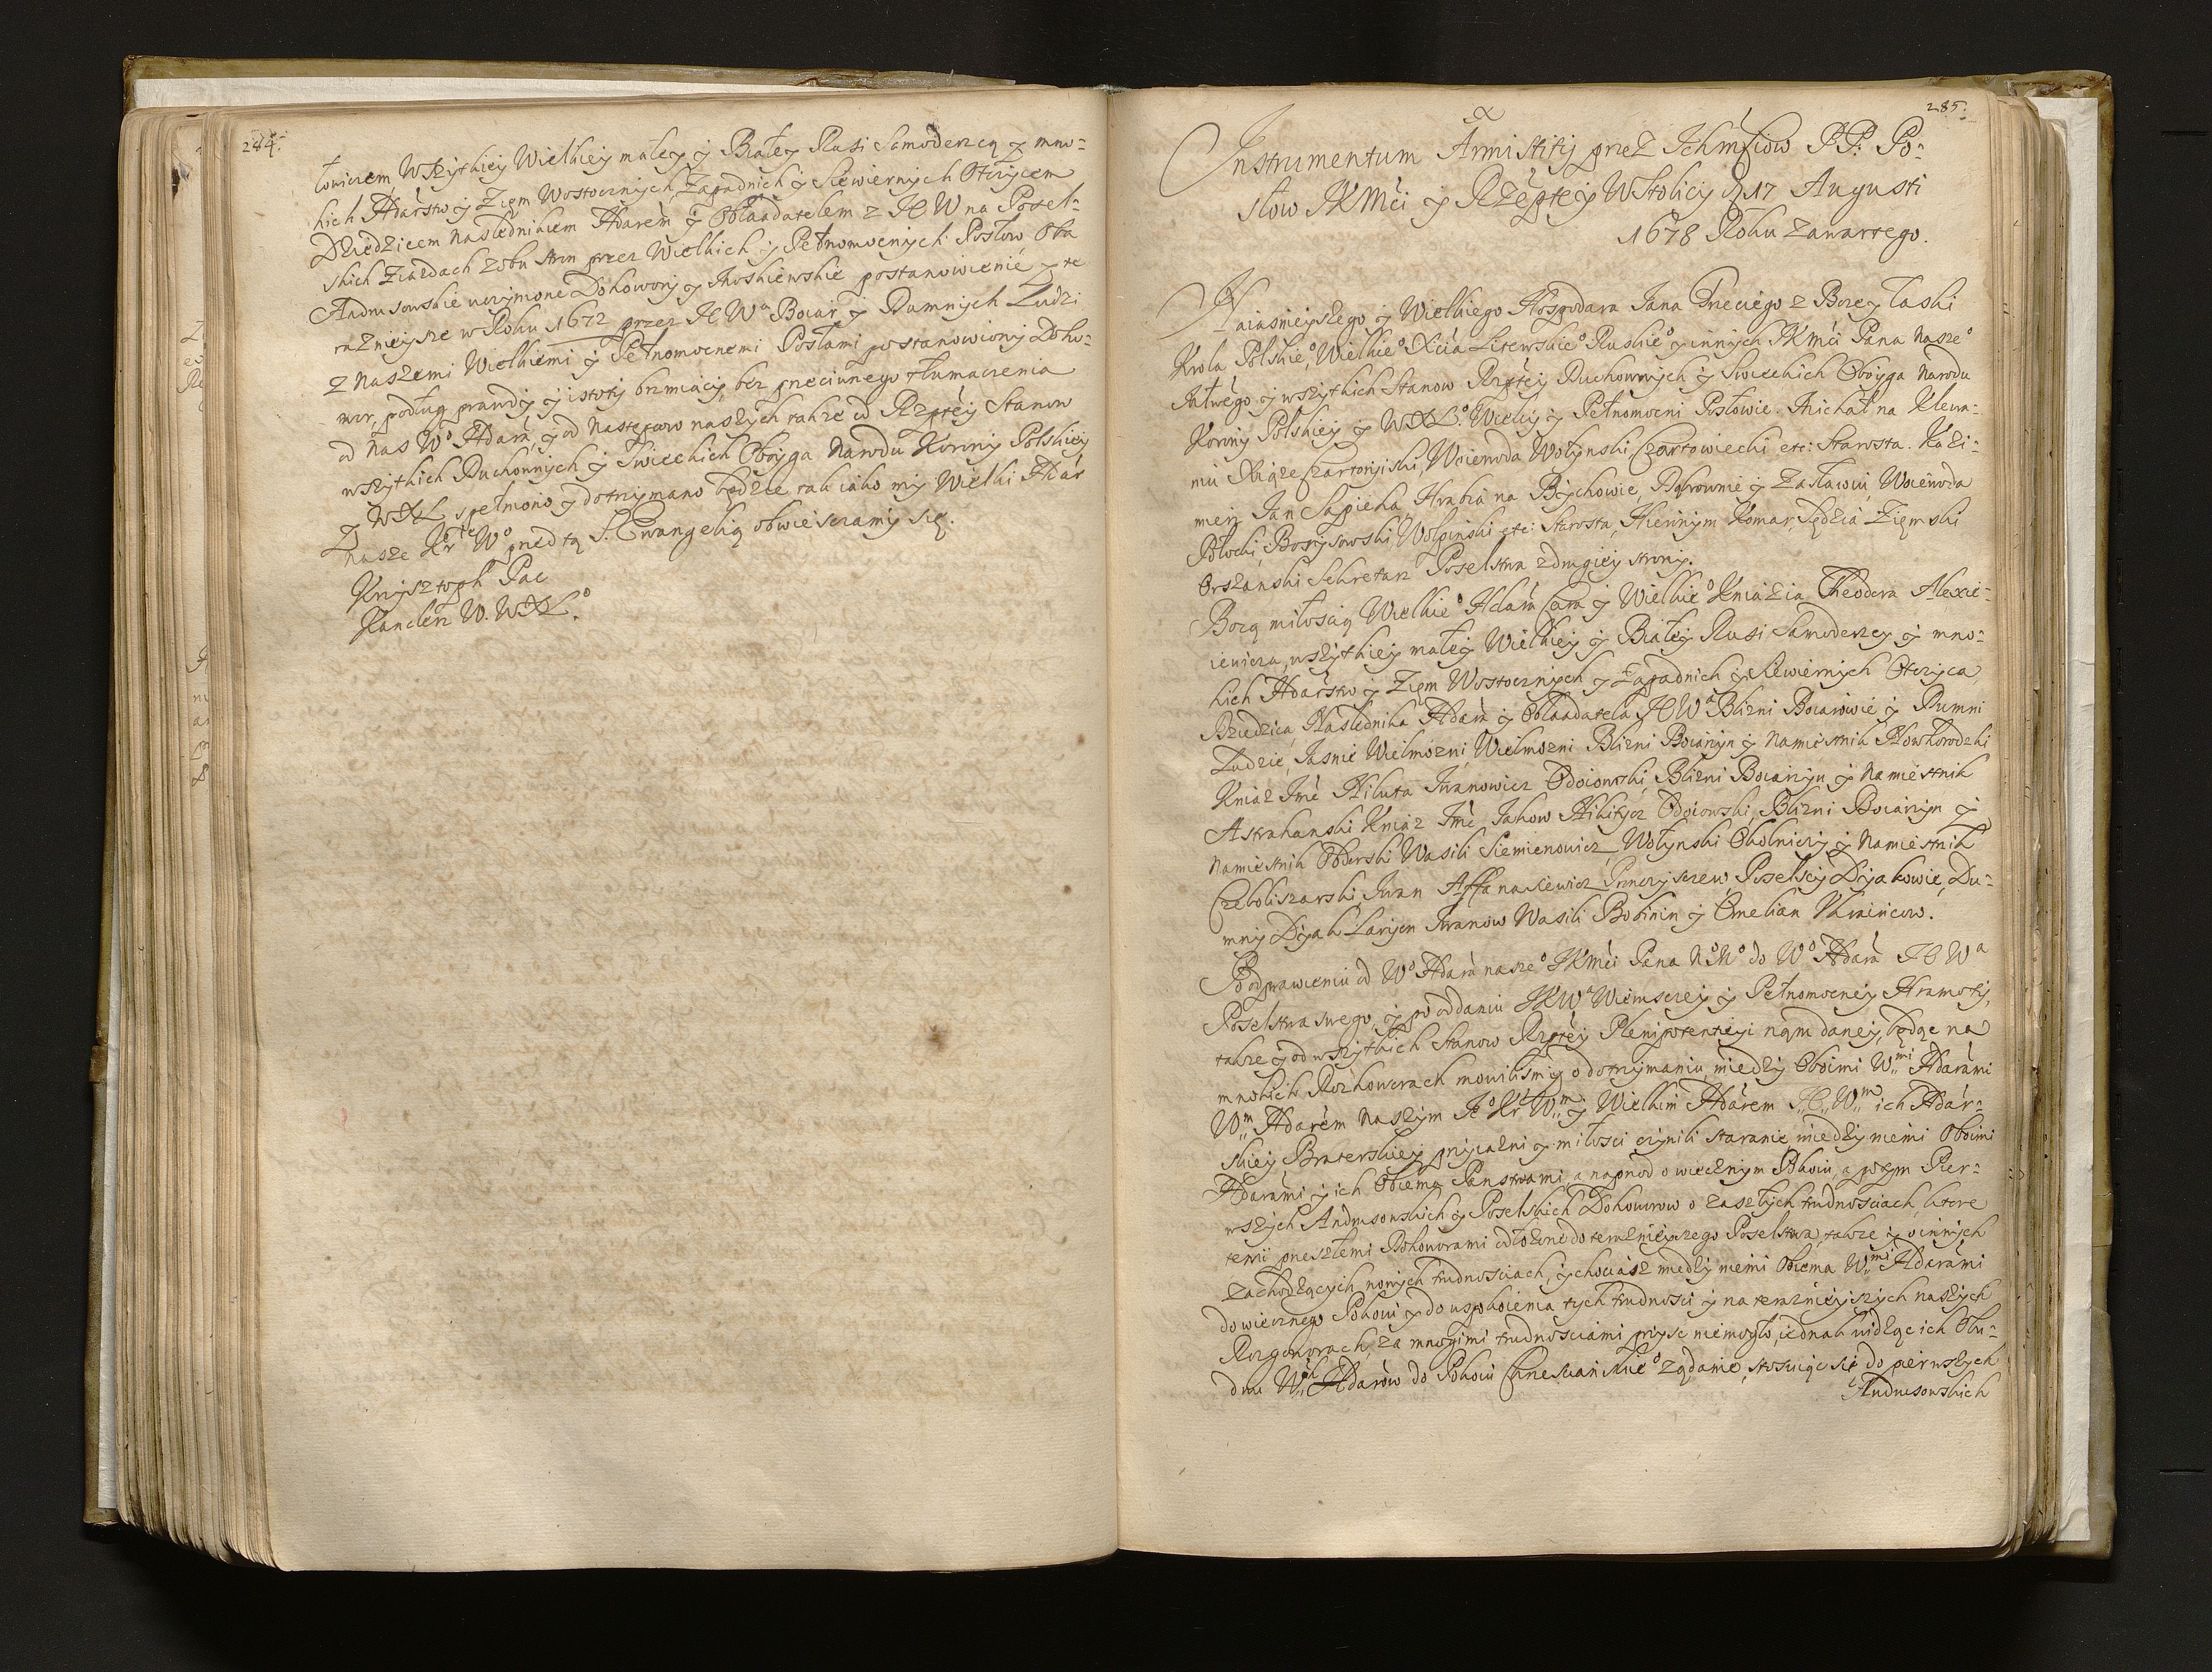 284.
łowiczem Wszytkiey Wielkiey małey y Białey Rusi Samodercą y mno=
kich Hdarstw y Ziem Wostocznych, Zapadnich y Siewiernych Otczycem
Dziedzicem Naslednikiem Hdarem y Obladatelem z JCW na Posel=
skich Ziazdach z obu stron przez Wielkich y Pełnomocnych Posłow Oba
Andrusowskie uczynione Dohowory y Moskiewskie postanowienie y te
raznieysze w Roku 1672 przez JCWa Boiar y Dumnych Ludzi
z naszemi Wielkiemi y Pełnomocnemi Posłami postanowiony Doho=
wor, podług prawdy y istoty brzmiący, bez przeciwnego tłumaczenia
od Nas Wo Hdara, y od Następcow naszych także od Rzptey Stanow
wszytkich Duchownych y Swieckich Oboyga Narodu Korony Polskiey
y WXL spełniono y dotrzymano będzie tak iako my Wielki Hdar
nasze KrtcWo przed tą S. Ewangelią obwieszczamy się.
Krzysztoph Pac
Kanclerz W. WXLo.
285.
Instrumentum Armistitij przez Ichmciow PP. Po=
słow JKMci y Rzeptey W Stolicy d 17 Augusti
1678 Roku zawartego.
Naiasnieyszego y Wielkiego Hospodara Jana Trzeciego z Bożey łaski
Krola Polskieo, Wielkieo Xcia Litewskieo Ruskieo y innych JKMci Pana Naszeo
Miłwego y wszytkich Stanow Rzptey Duchownych y Swieckich Oboyga Narodu
Korony Polskiey y WXLo. Wielcy y Pełnomocni Posłowie. Michał na Klewa=
niu Xiąże Czartoryiski, Woiewoda Wołynski, Czartowiecki etc: Starosta. Kazi=
mierz Jan Sapieha, Hrabia na Bychowie, Dąbrownie y Zasławiu, Woiewoda
Połocki, Borysowski, Wolpinski etc: Starosta, Hieronym Komar Sędzia Ziemski
Orszanski Sekretarz Poselstwa z drugiey strony.
Bożą miłoscią Wielkieo Hdara Cara y Wielkieo Kniazia Theodora Alexie=
iewicza, wszytkiey małey Wielkiey y Białey Rusi Samodercy y mno=
kich Hdarstw y Ziem Wostocznych y Zapadnich y Siewiernych Otczyca,
Dziedzica, Naslednika Hdara y Obladatela JCWa Blizni Boiarowie y Dumni
Ludzie, Jasnie Wielmozni, Wielmozni Blizni Boiaryn y Namiestnik Nowhorodzki
Kniaz Jmc Nikita Iwanowicz Odoiowski, Blizni Boiaryn y Namiestnik
Astrahanski Kniaz Jmc, Jakow Nikitycz Odoiowski, Blizni Boiaryn y
Namiestnik Obdorski Wasili Siemienowicz Wołynski Okolniczy y Namiestnik
Czeboksarski, Iwan Affanasiewicz Pronczyszczew, Poselscy Dyakowie, Du=
mny Dyak Laryon Iwanow Wasili Bobinin y Emelian Ukraincow.
Po odprawieniu od Wo Hdara naszeo JKMci Pana NoMo do Wo Hdara JCWa
Poselstwa swego, y po oddaniu JKWa Wieruszczey y Pełnomocney Hramoty,
także y od wszytkich Stanow Rzptey Plenipotentyi nam daney, będąc na
mnohich Rozhoworach mowilismy o dotrzymaniu, miedzy Oboimi Wmi Hdarami
Wm Hdarem naszym JeoKrtWm y Wielkim Hdarem JCWm ich Hdar=
skiey Braterskiey przyiazni y miłosci czynili staranie miedzy niemi Oboimi
Hdarami y ich Obiema Panstwami, a naprzod o wiecznym Pokoiu, a potym Pier=
wszych Andrusowskich y Poselskich Dohoworow o zaszłych trudnosciach, ktore
temi przeszłemi Dohoworami odłożone do teraznieyszego Poselstwa, także y o innych
zachodzących nowych trudnosciach, y chociasz miedzy niemi Obiema Wmi Hdarami
do wiecznego Pokoiu y do uspokoienia tych trudnosci y na teraznieyszych naszych
Rozgoworach, za mnogimi trudnosciami przysc niemogło, iednak widząc ich Obu=
dwu Wch Hdarow do Pokoiu Chrzesciańskieo żądanie, stosuiąc się do pierwszych
Andrusowskich